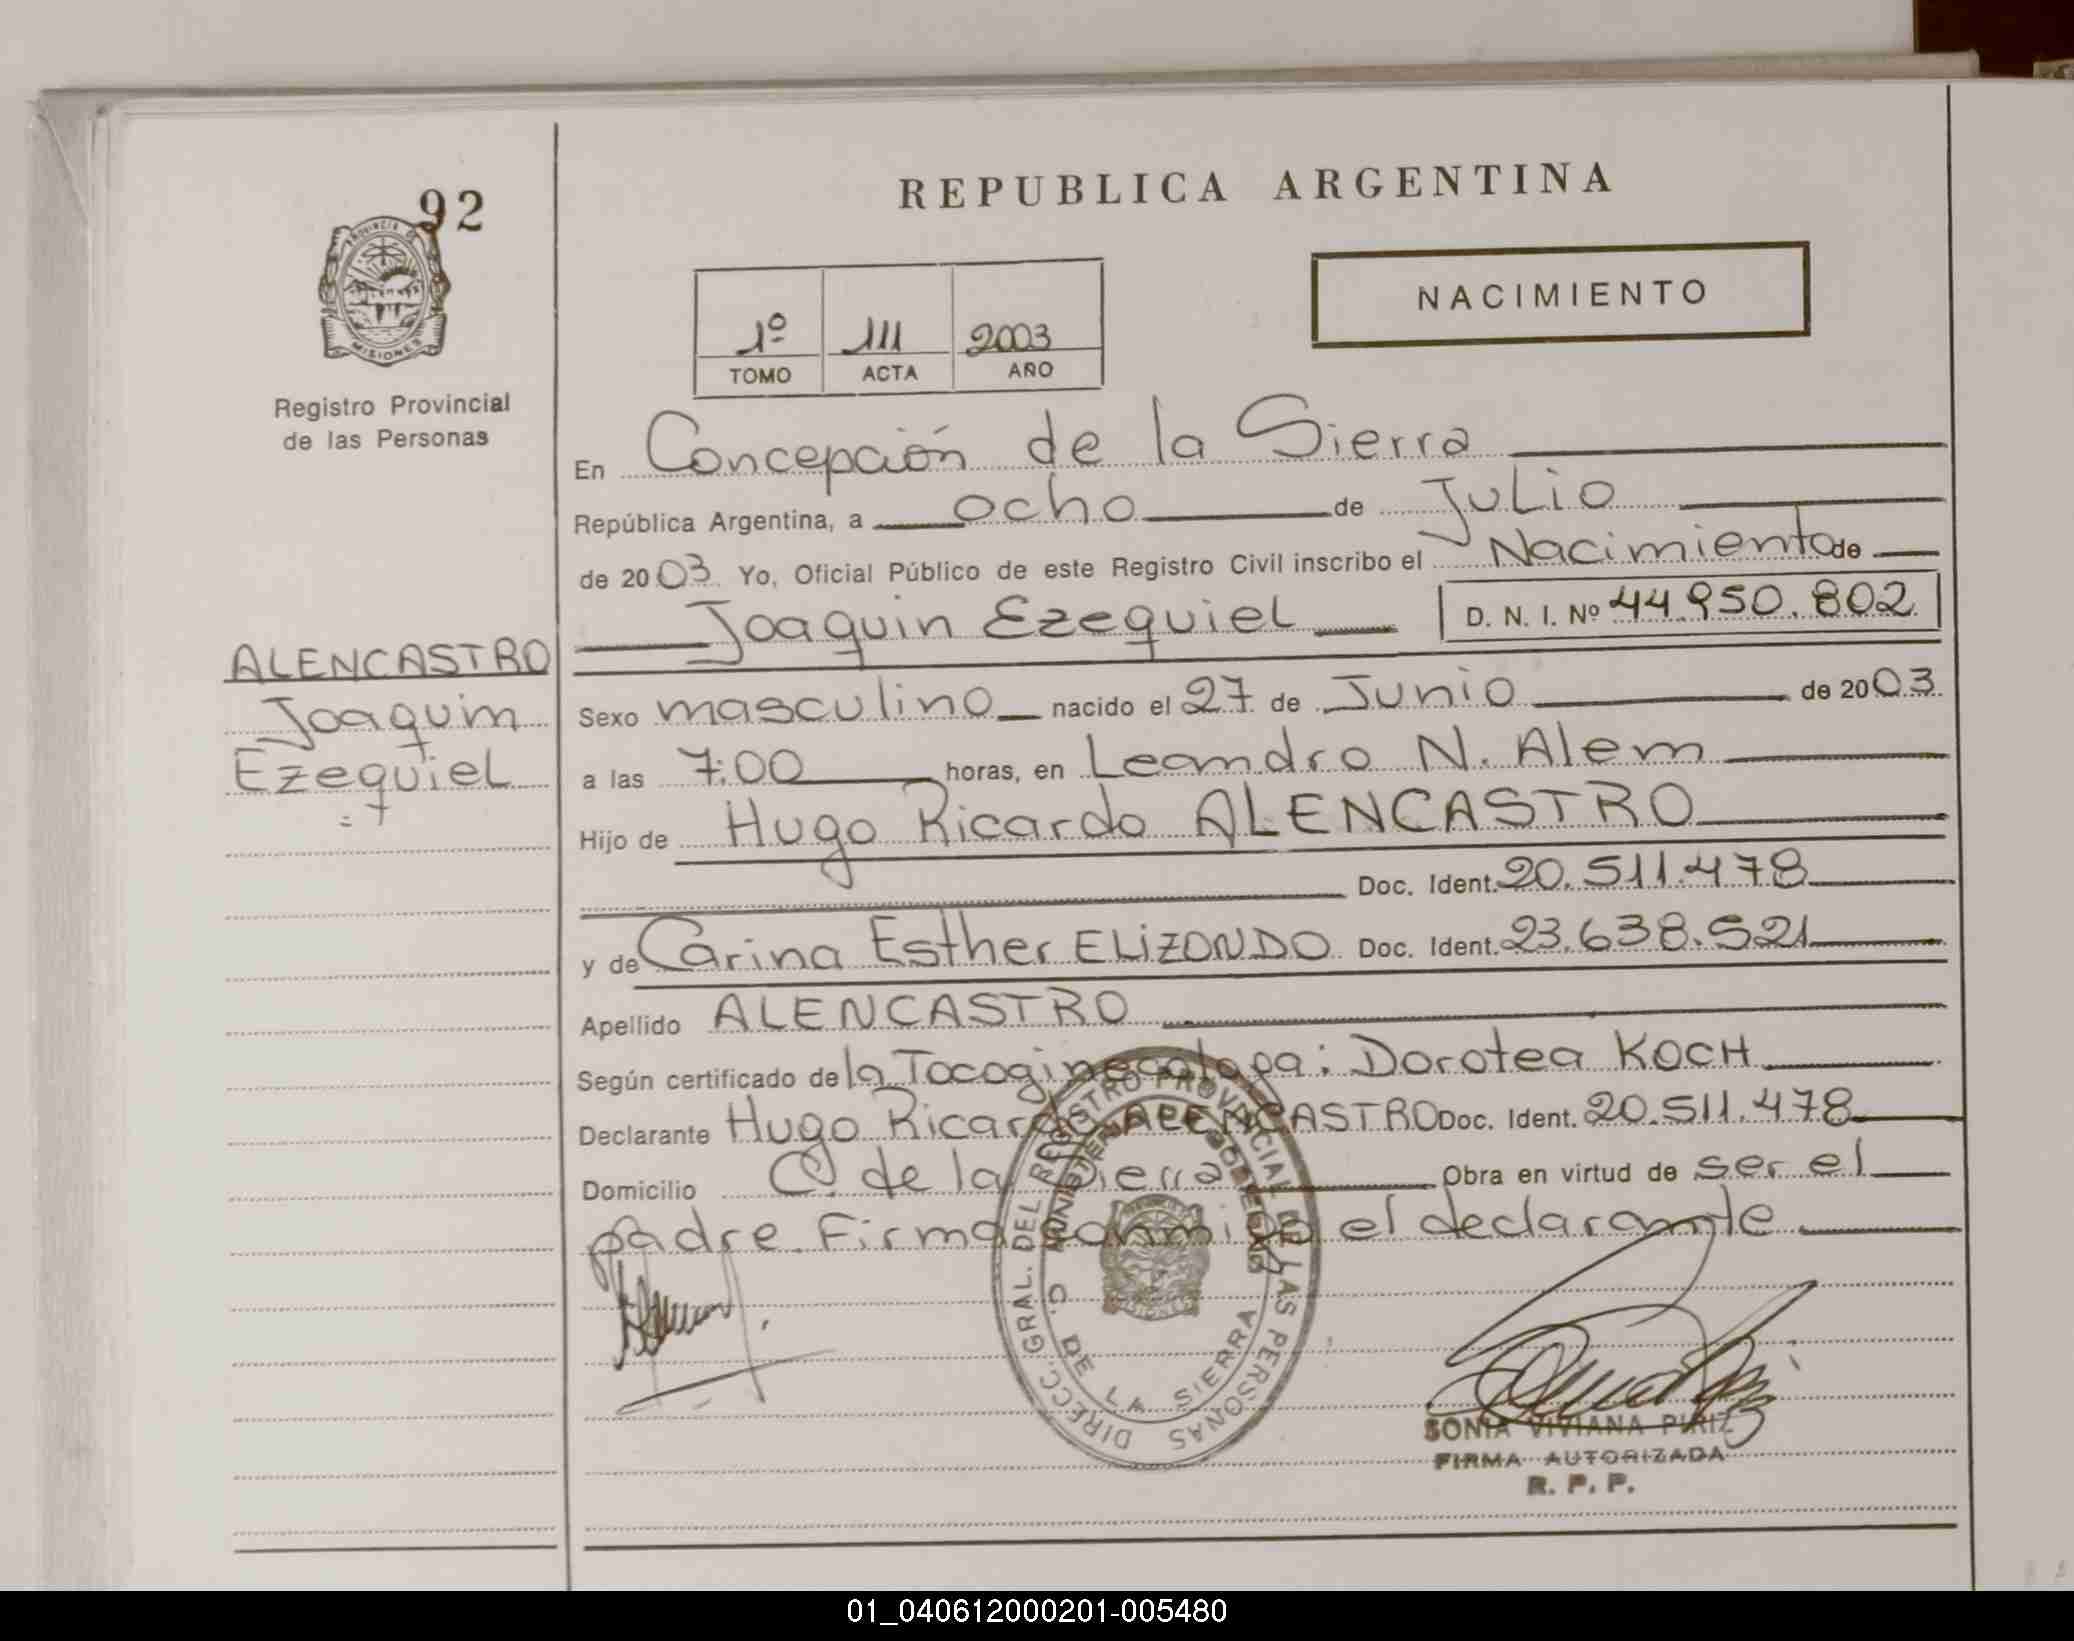 92
PROVINCIA DE
MISIONES
Registro Provincial
de las Personas
ALENCASTRO
Joaquin
Ezequiel
REPUBLICA ARGENTINA
1º 111 2003
TOMO ACTA AÑO
NACIMIENTO
En Concepción de la Sierra
República Argentina, a ocho de Julio
de 2003 Yo, Oficial Público de este Registro Civil inscribo el Nacimiento de
Joaquin Ezequiel D. N. I. Nº 44.950.802
Sexo masculino nacido el 27 de Junio de 2003
a las 7:00 horas, en Leandro N. Alem
Hijo de Hugo Ricardo ALENCASTRO
Doc. Ident. 20.511.478
y de Carina Esther ELIZONDO Doc. Ident. 23.638.521
Apellido ALENCASTRO
Según certificado de la Tocoginecologa: Dorotea KOCH
Declarante Hugo Ricardo ALENCASTRO Doc. Ident. 20.511.478
Domicilio C. de la Sierra Obra en virtud de ser el
padre. Firma conmigo el declarante
DIRECC. GRAL. DEL REGISTRO PROVINCIAL DE LAS PERSONAS
MINISTERIO DE GOBIERNO
C. DE LA SIERRA
MISIONES
SONIA VIVIANA PIRIZ
FIRMA AUTORIZADA
R. P. P.
01_040612000201-005480